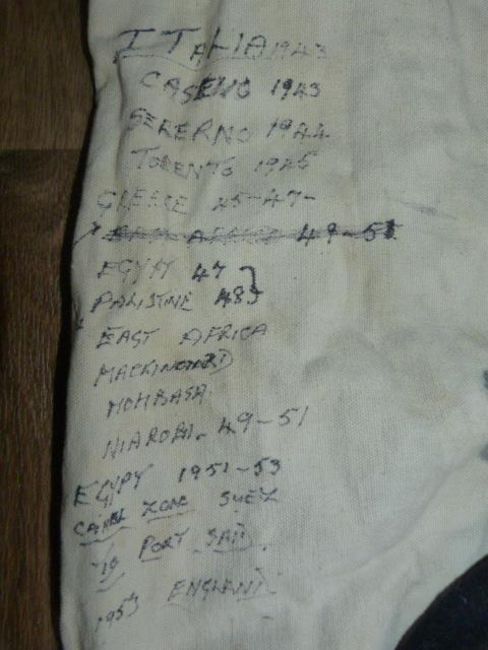 ITALIA 1943
CASENO 1943
SERERNO 1944
TORENTO 1945
GREECE 45-47-
EAST AFRICA 49-51
EGYPT 47
PALISTINE 48
EAST AFRICA
MOMBASA
NIAROBI. 49-51
EGYPT 1951-53
CANAL ZONE SUEZ
TO PORT SAID.
1953 ENGLAND.